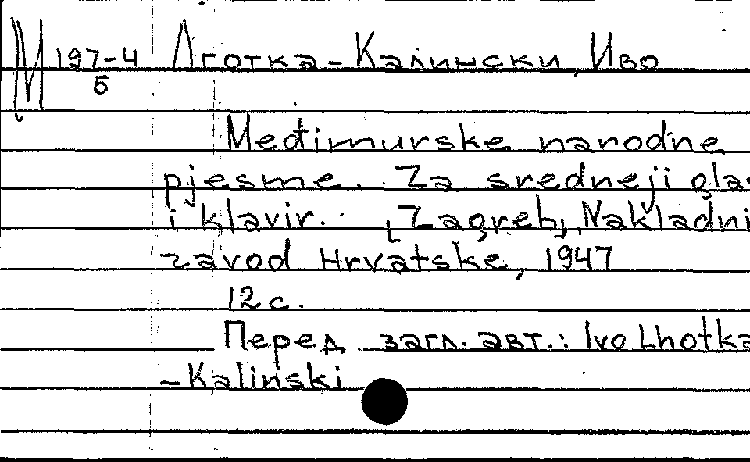 М 197-4 Лготка-Калински, Иво
5
Međimurske narodne
pjesme. Za srednji glas
i klavir. [Zagreb], Nakladni
zavod Hrvatske, 1947
12 с.
Перед загл. авт.: Ivo Lhotka
-Kalinski